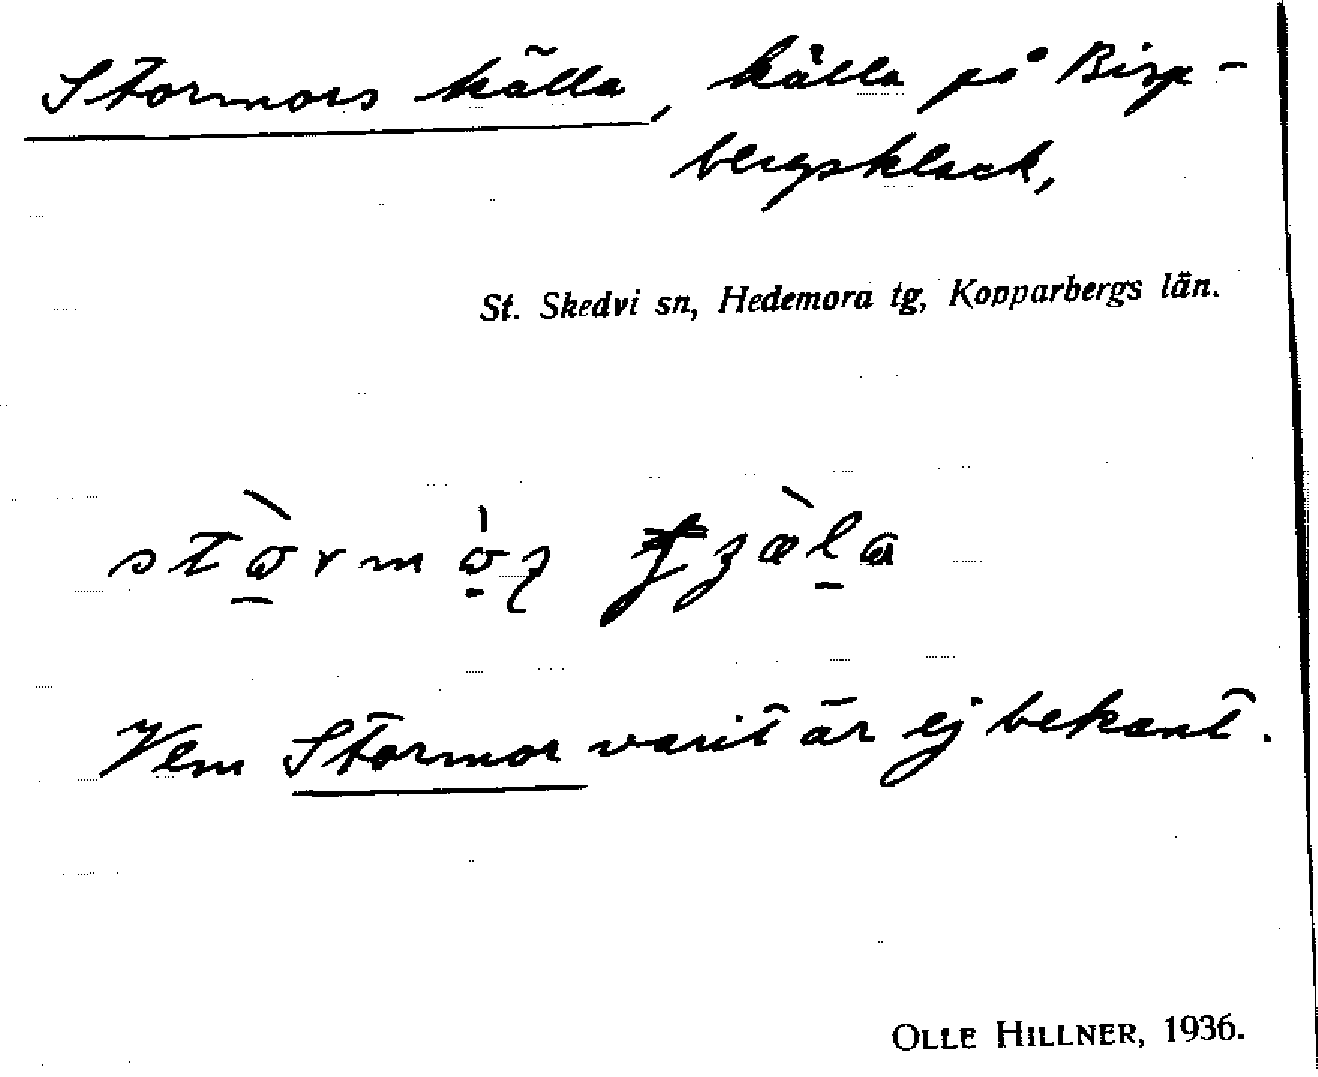 Stormors källa, källa på Bisp-
bergsklack,
St. Skedvi sn, Hedemora tg, Kopparbergs län.
Vem Stormor varit är ej bekant.
OLLE HILLNER, 1936.